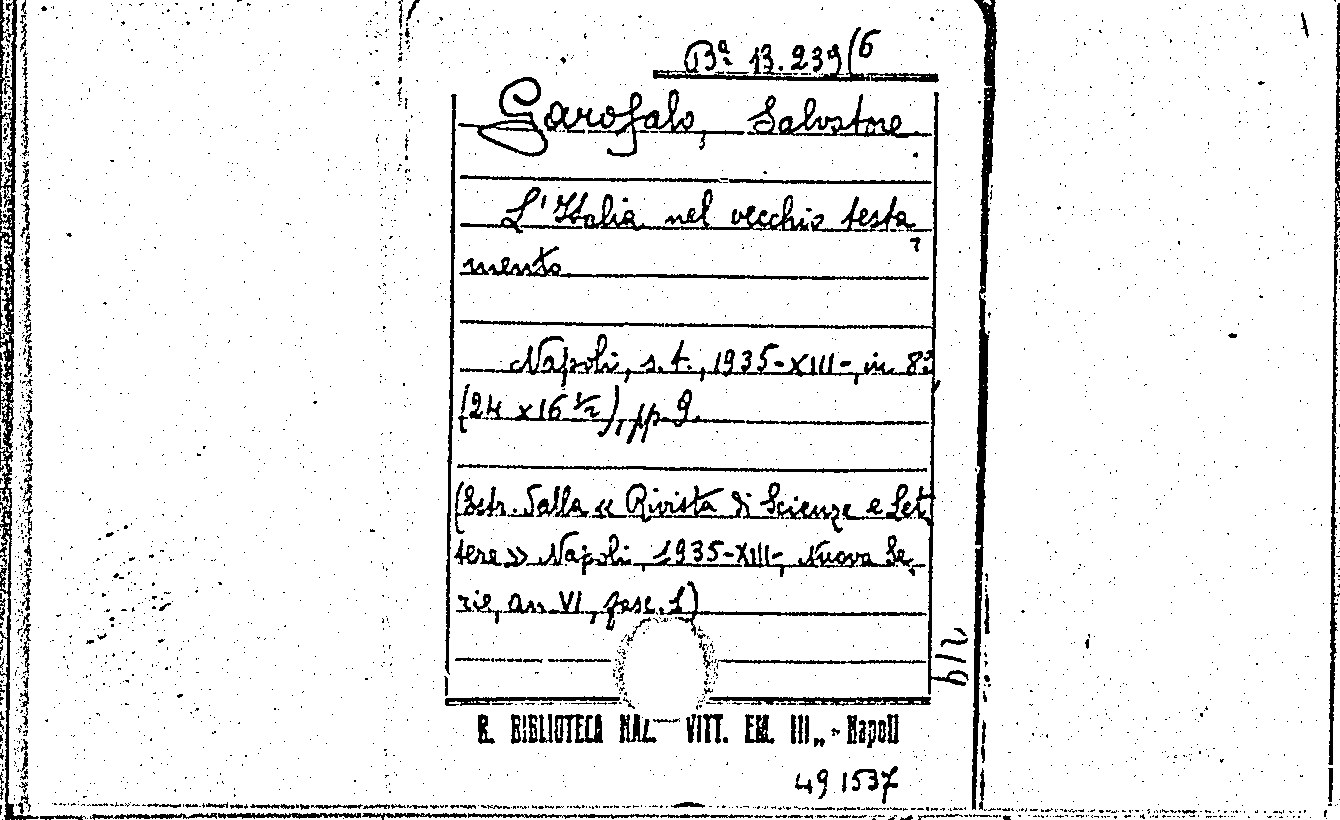 Bª 13.239(6
Garofalo, Salvatore.
L'Italia nel vecchio testa
mento
Napoli, s.t., 1935-XIII-, in 8º,
(24 x 16 ½), pp. 9.
(Estr. dalla « Rivista di Scienze e Let,
tere » Napoli, 1935-XIII-, Nuova Se,
rie, an. VI, fasc. 1)
R. BIBLIOTECA NAZ. VITT. EM. III„ - Napoli
49 1537